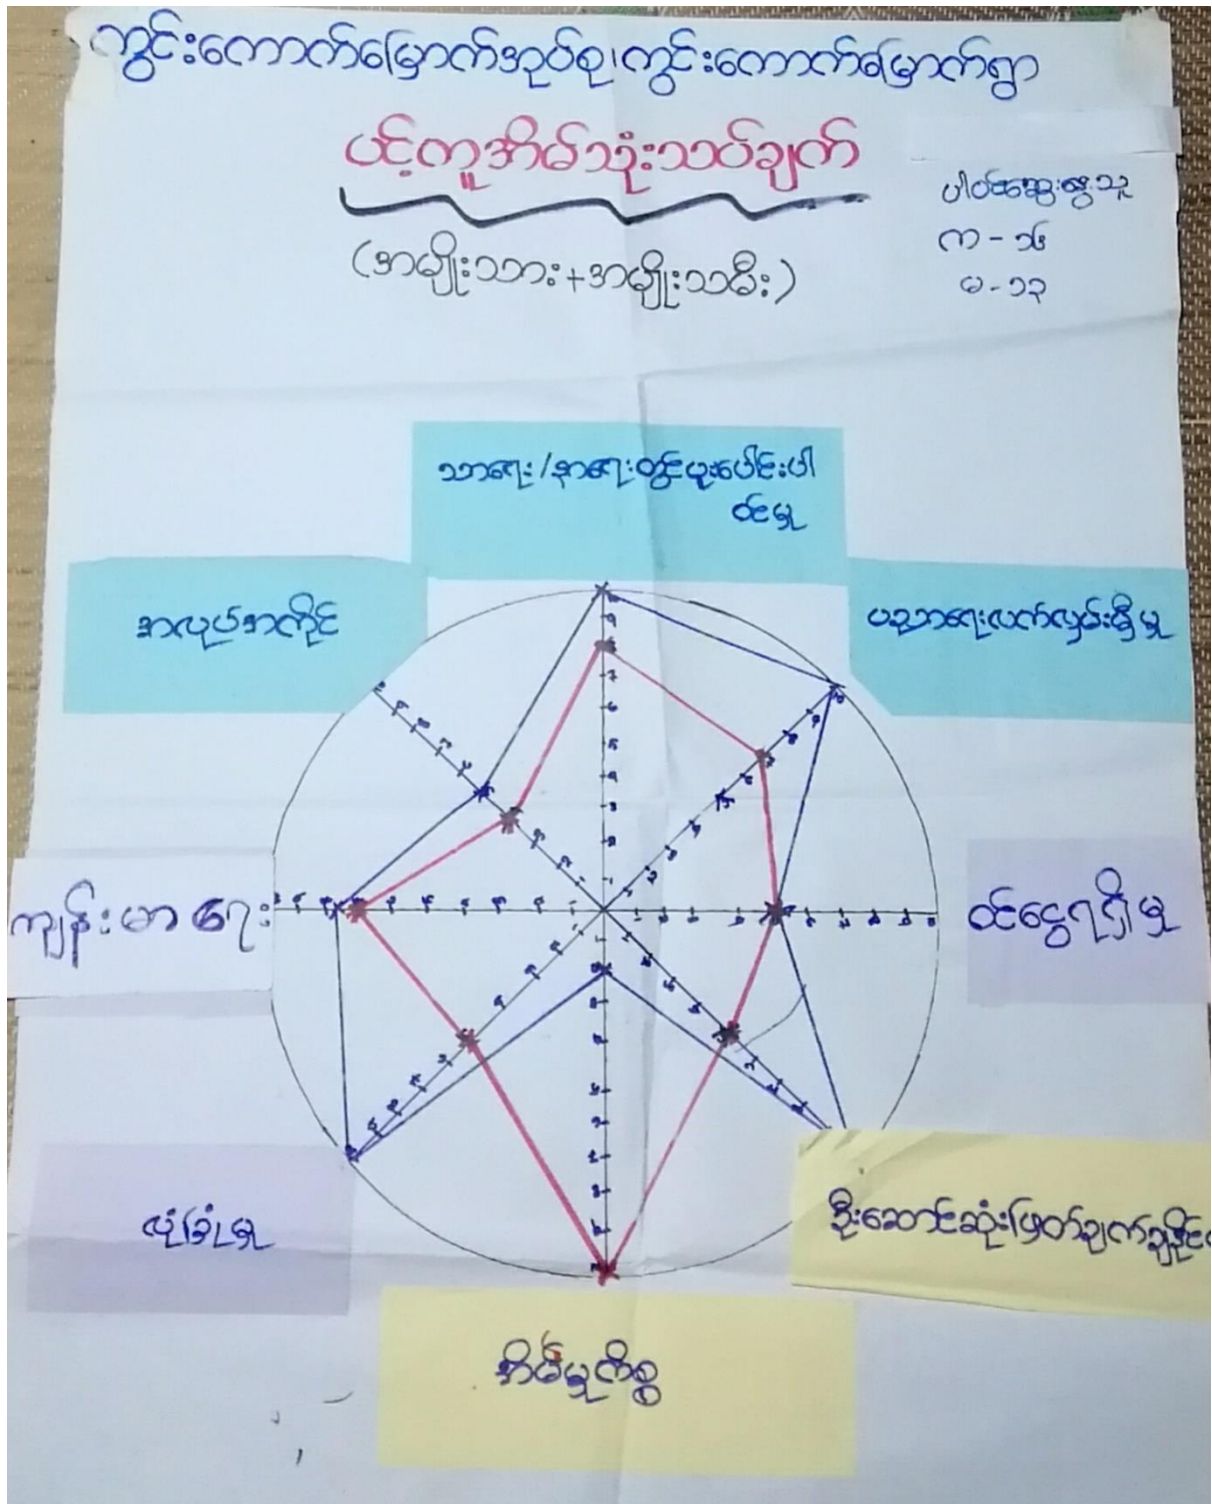 ကွင်းကောက်မြောက်အုပ်စု၊ ကွင်းကောက်မြောက်ရွာ
ပင့်ကူအိမ်သုံးသပ်ချက်
(အမျိုးသား+အမျိုးသမီး)
ပါဝင်ဆွေးနွေးသူ
က - ၁၆
မ - ၁၃
သာရေး/နာရေးတွင်ပူးပေါင်းပါ
ဝင်မှု
အလုပ်အကိုင်
ပညာရေးလက်လှမ်းမှီမှု
ကျန်းမာရေး
ဝင်ငွေရရှိမှု
လုံခြုံမှု
ဦးဆောင်ဆုံးဖြတ်ချက်ချနိုင်
အိမ်မှုကိစ္စ